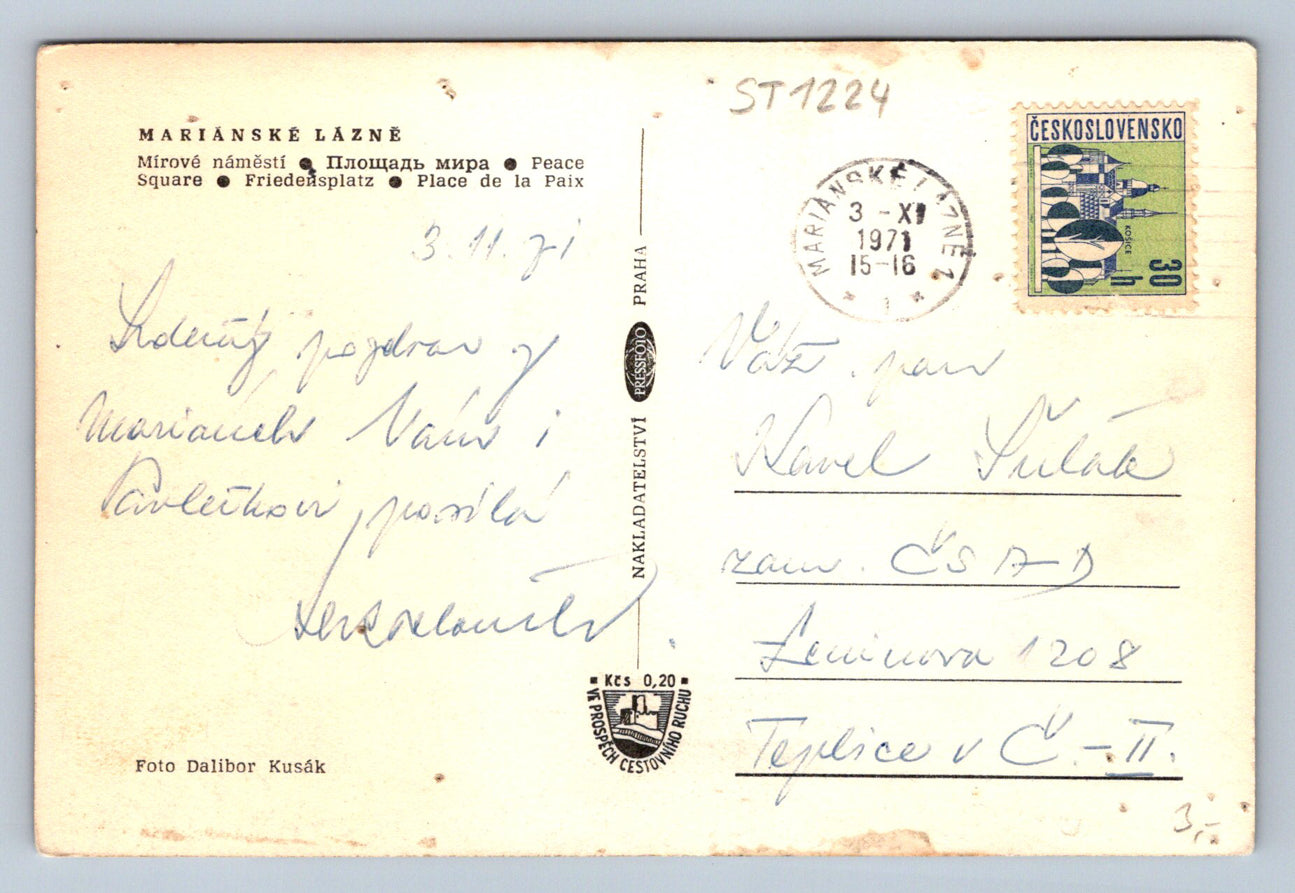 ST 1224
MARIÁNSKÉ LÁZNĚ
Mírové náměstí ● Площадь мира ● Peace
Square ● Friedensplatz ● Place de la Paix
3. 11. 71
Srdečný pozdrav z
Mariánek Vám i
Pavlečkovi posílá
Foto Dalibor Kusák
NAKLADATELSTVÍ PRESSFOTO PRAHA
Kčs 0,20
VE PROSPĚCH CESTOVNÍHO RUCHU
MARIÁNSKÉ LÁZNĚ 1
3 -XI
1971
15-16
ČESKOSLOVENSKO
KOŠICE
30 h
Váž. pan
Karel
zam. ČSAD
Leninova 1208
Teplice v Č. - II.
3,-